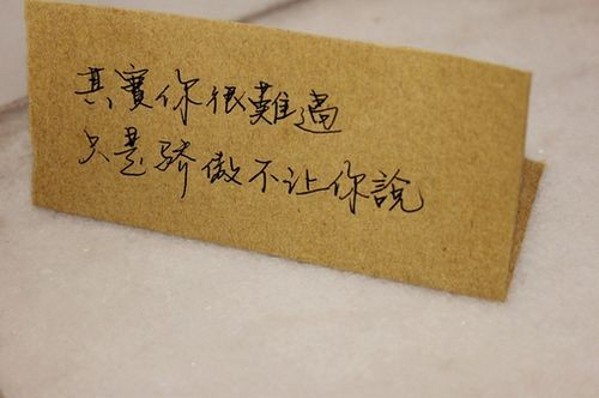 其實你很難過
只是骄傲不让你說